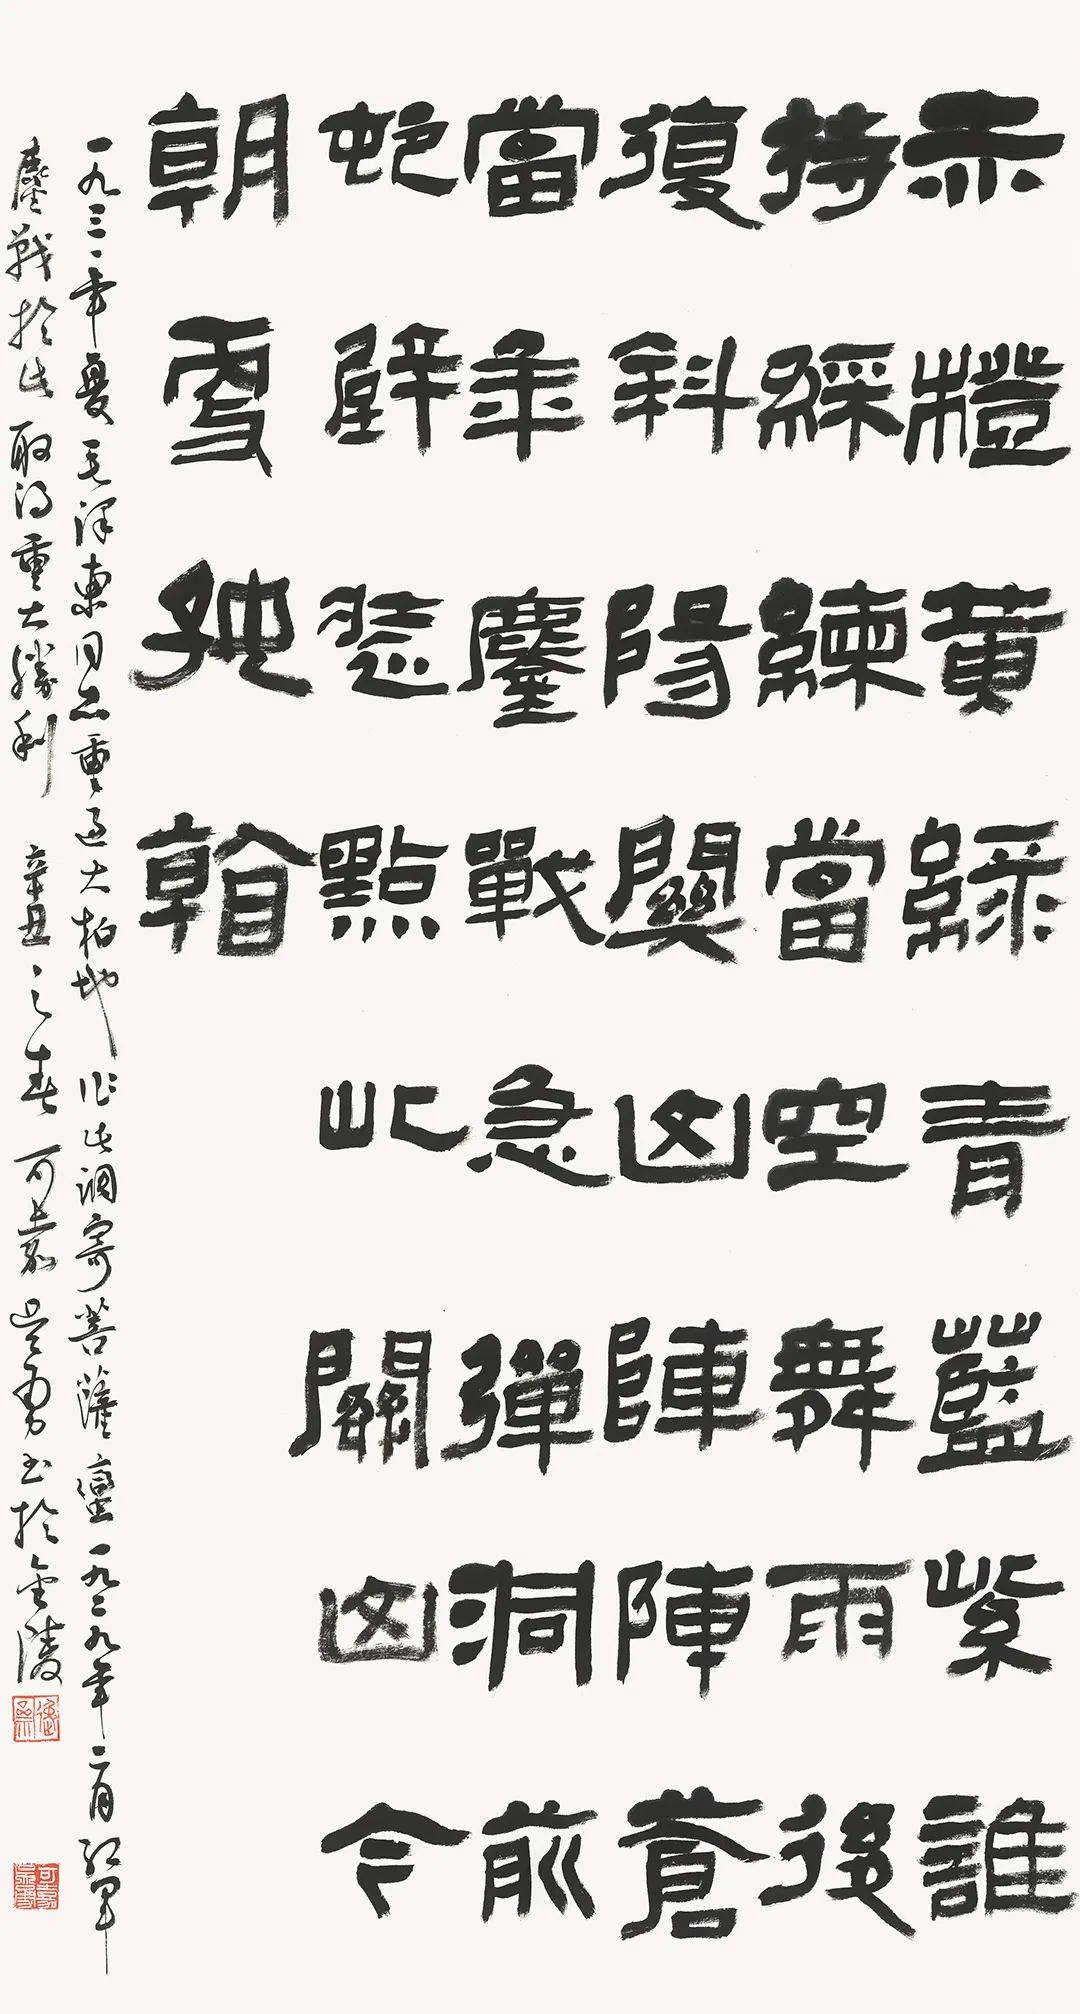 赤橙黃綠青藍紫誰
持綵練當空舞雨後
復斜陽關山陣陣蒼
當年鏖戰急彈洞前
邨壁裝點此關山今
朝更好看
一九三三年夏毛澤東同志重過大柏地作此調寄菩薩蠻一九二九年二月紅軍
鏖戰於此取得重大勝利 辛丑之春可嘉吳勇書於金陵